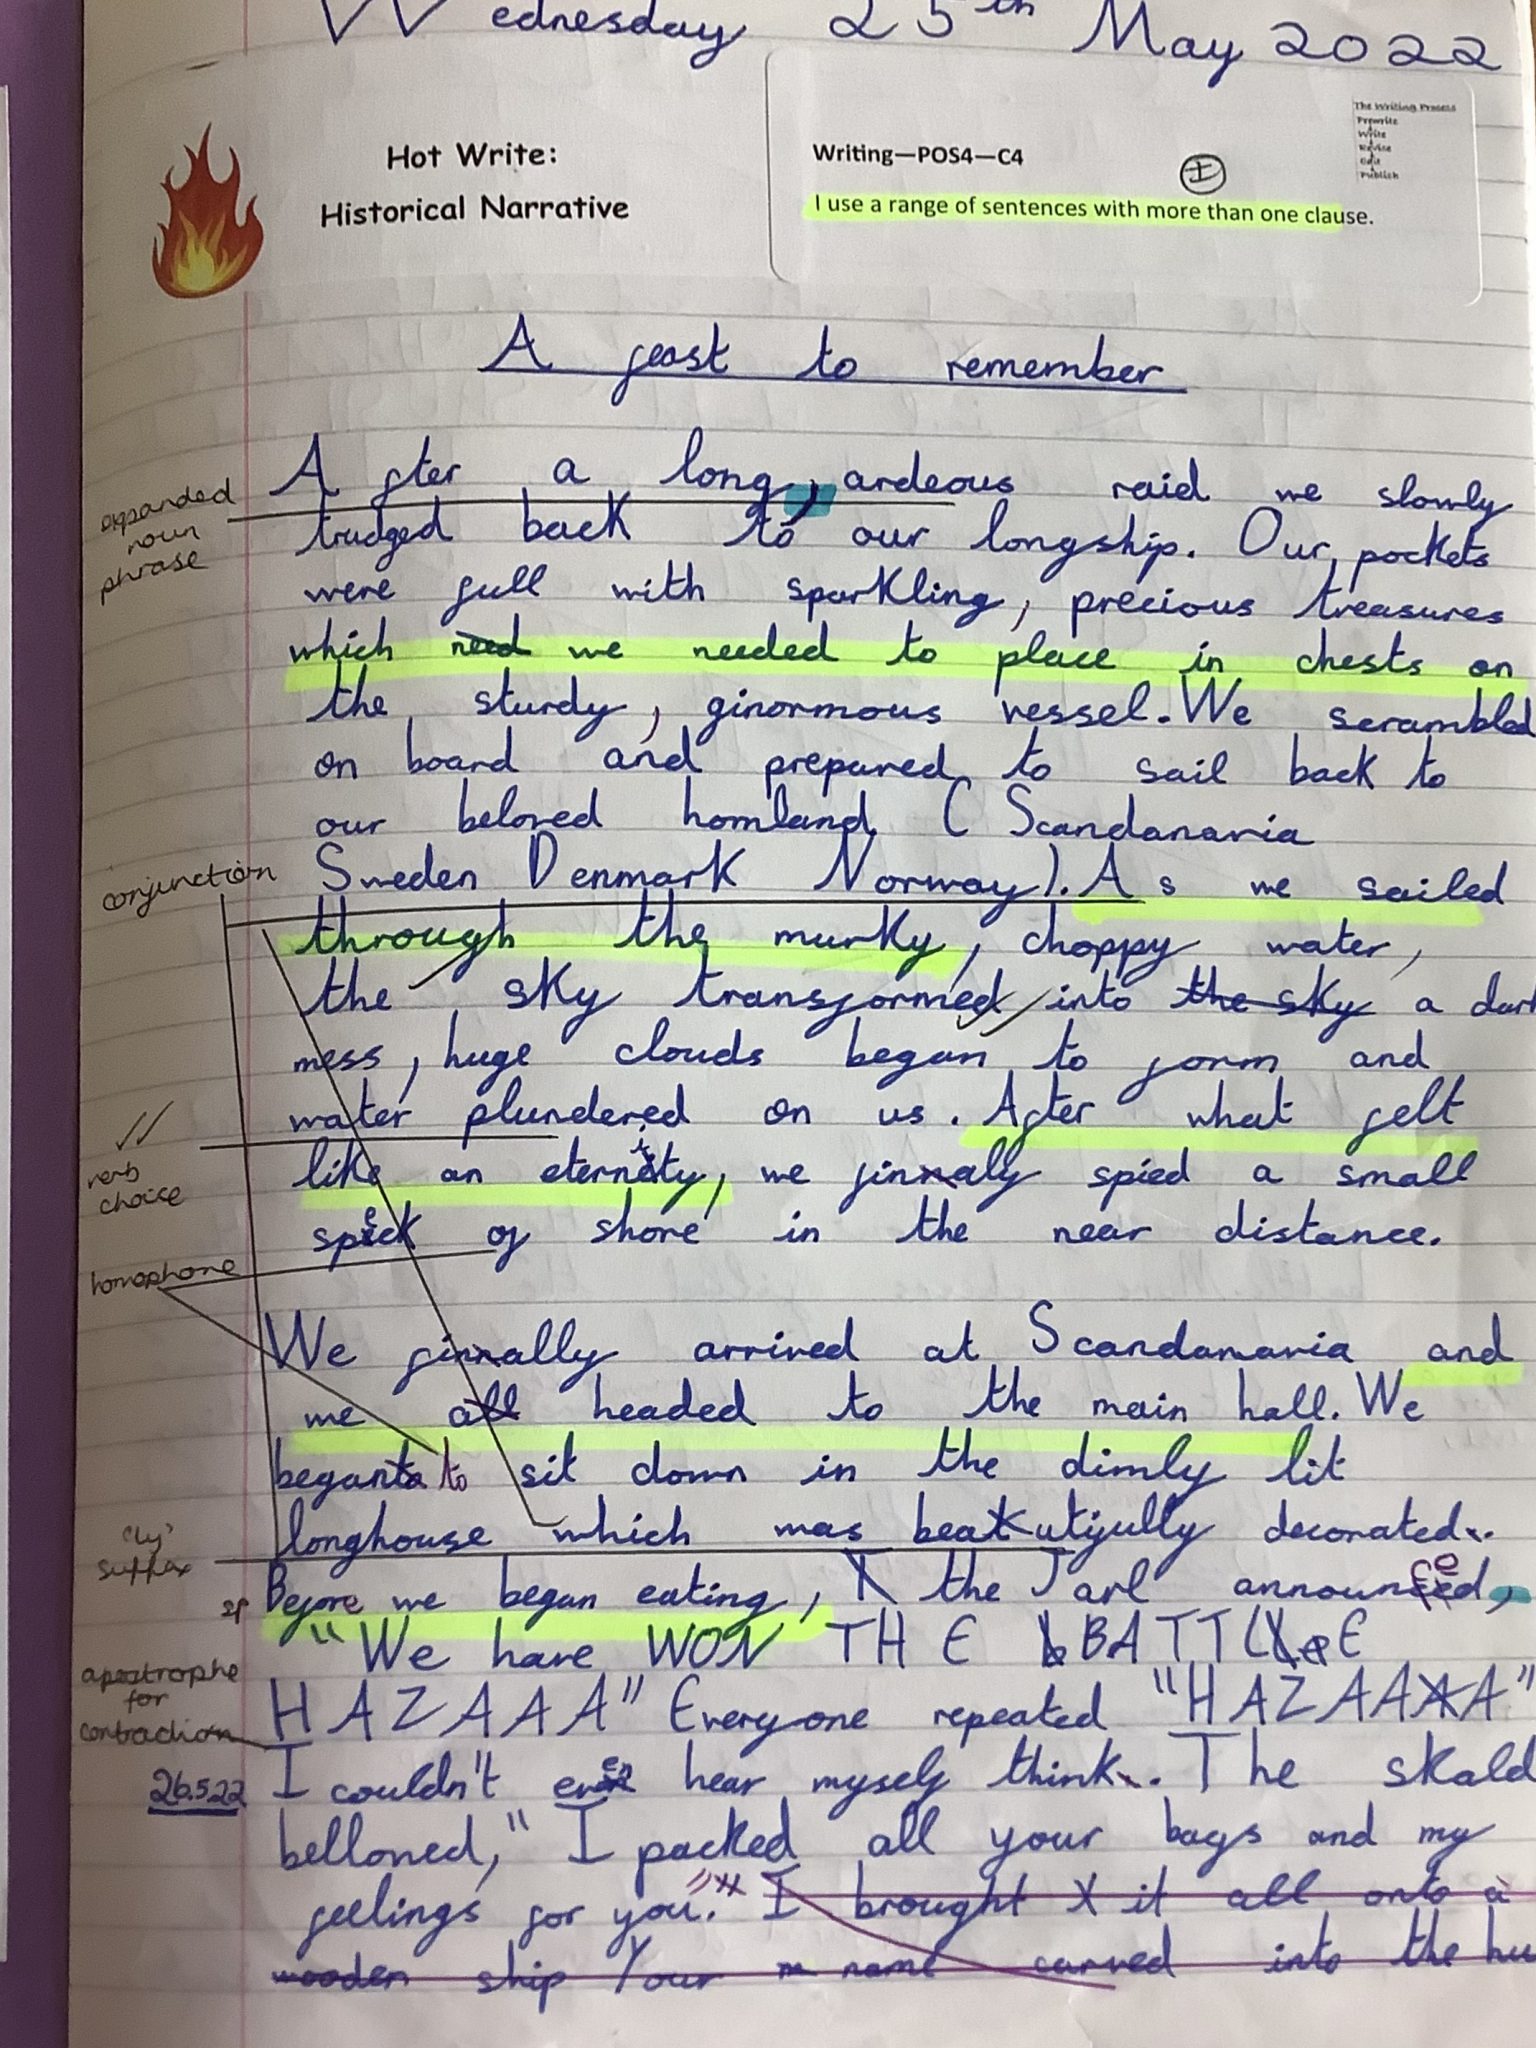 Wednesday 25th May 2022
Hot Write:
Historical Narrative
Writing—POS4—C4
I
I use a range of sentences with more than one clause.
The Writing Process
Prewrite
Write
Revise
Edit
Publish
A feast to remember
expanded noun phrase
After a long, ardeous raid we slowly
trudged back to our longship. Our pockets
were full with sparkling, precious treasures
which need we needed to place in chests on
the sturdy, ginormous vessel. We scrambled
on board and prepared to sail back to
our beloved homland ( Scandanavia
conjunction
Sweden Denmark Norway). As we sailed
through the murky, choppy water,
the sky transformed into the sky a dark
mess, huge clouds began to form and
water plundered on us. After what felt
verb choice
like an eternity, we finnaly spied a small
speck of shore in the near distance.
homophone
We finnally arrived at Scandanavia and
we all headed to the main hall. We
began to sit down in the dimly lit
longhouse which was beautifully decorated.
'ly' suffix
sp
Before we began eating, the Jarl announced,
"We have WON THE BATTLE
apostrophe for contraction
HAZAAA" Everyone repeated "HAZAAAA"
26.5.22
I couldn't even hear myself think. The skald
bellowed, "I packed all your bags and my
feelings for you." I brought it all onto a
wooden ship Your name carved into the hu